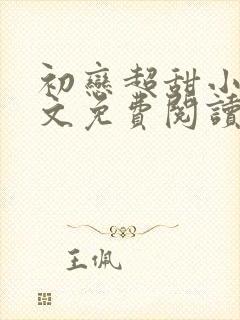 初戀超甜小
文免費閱讀
王佩